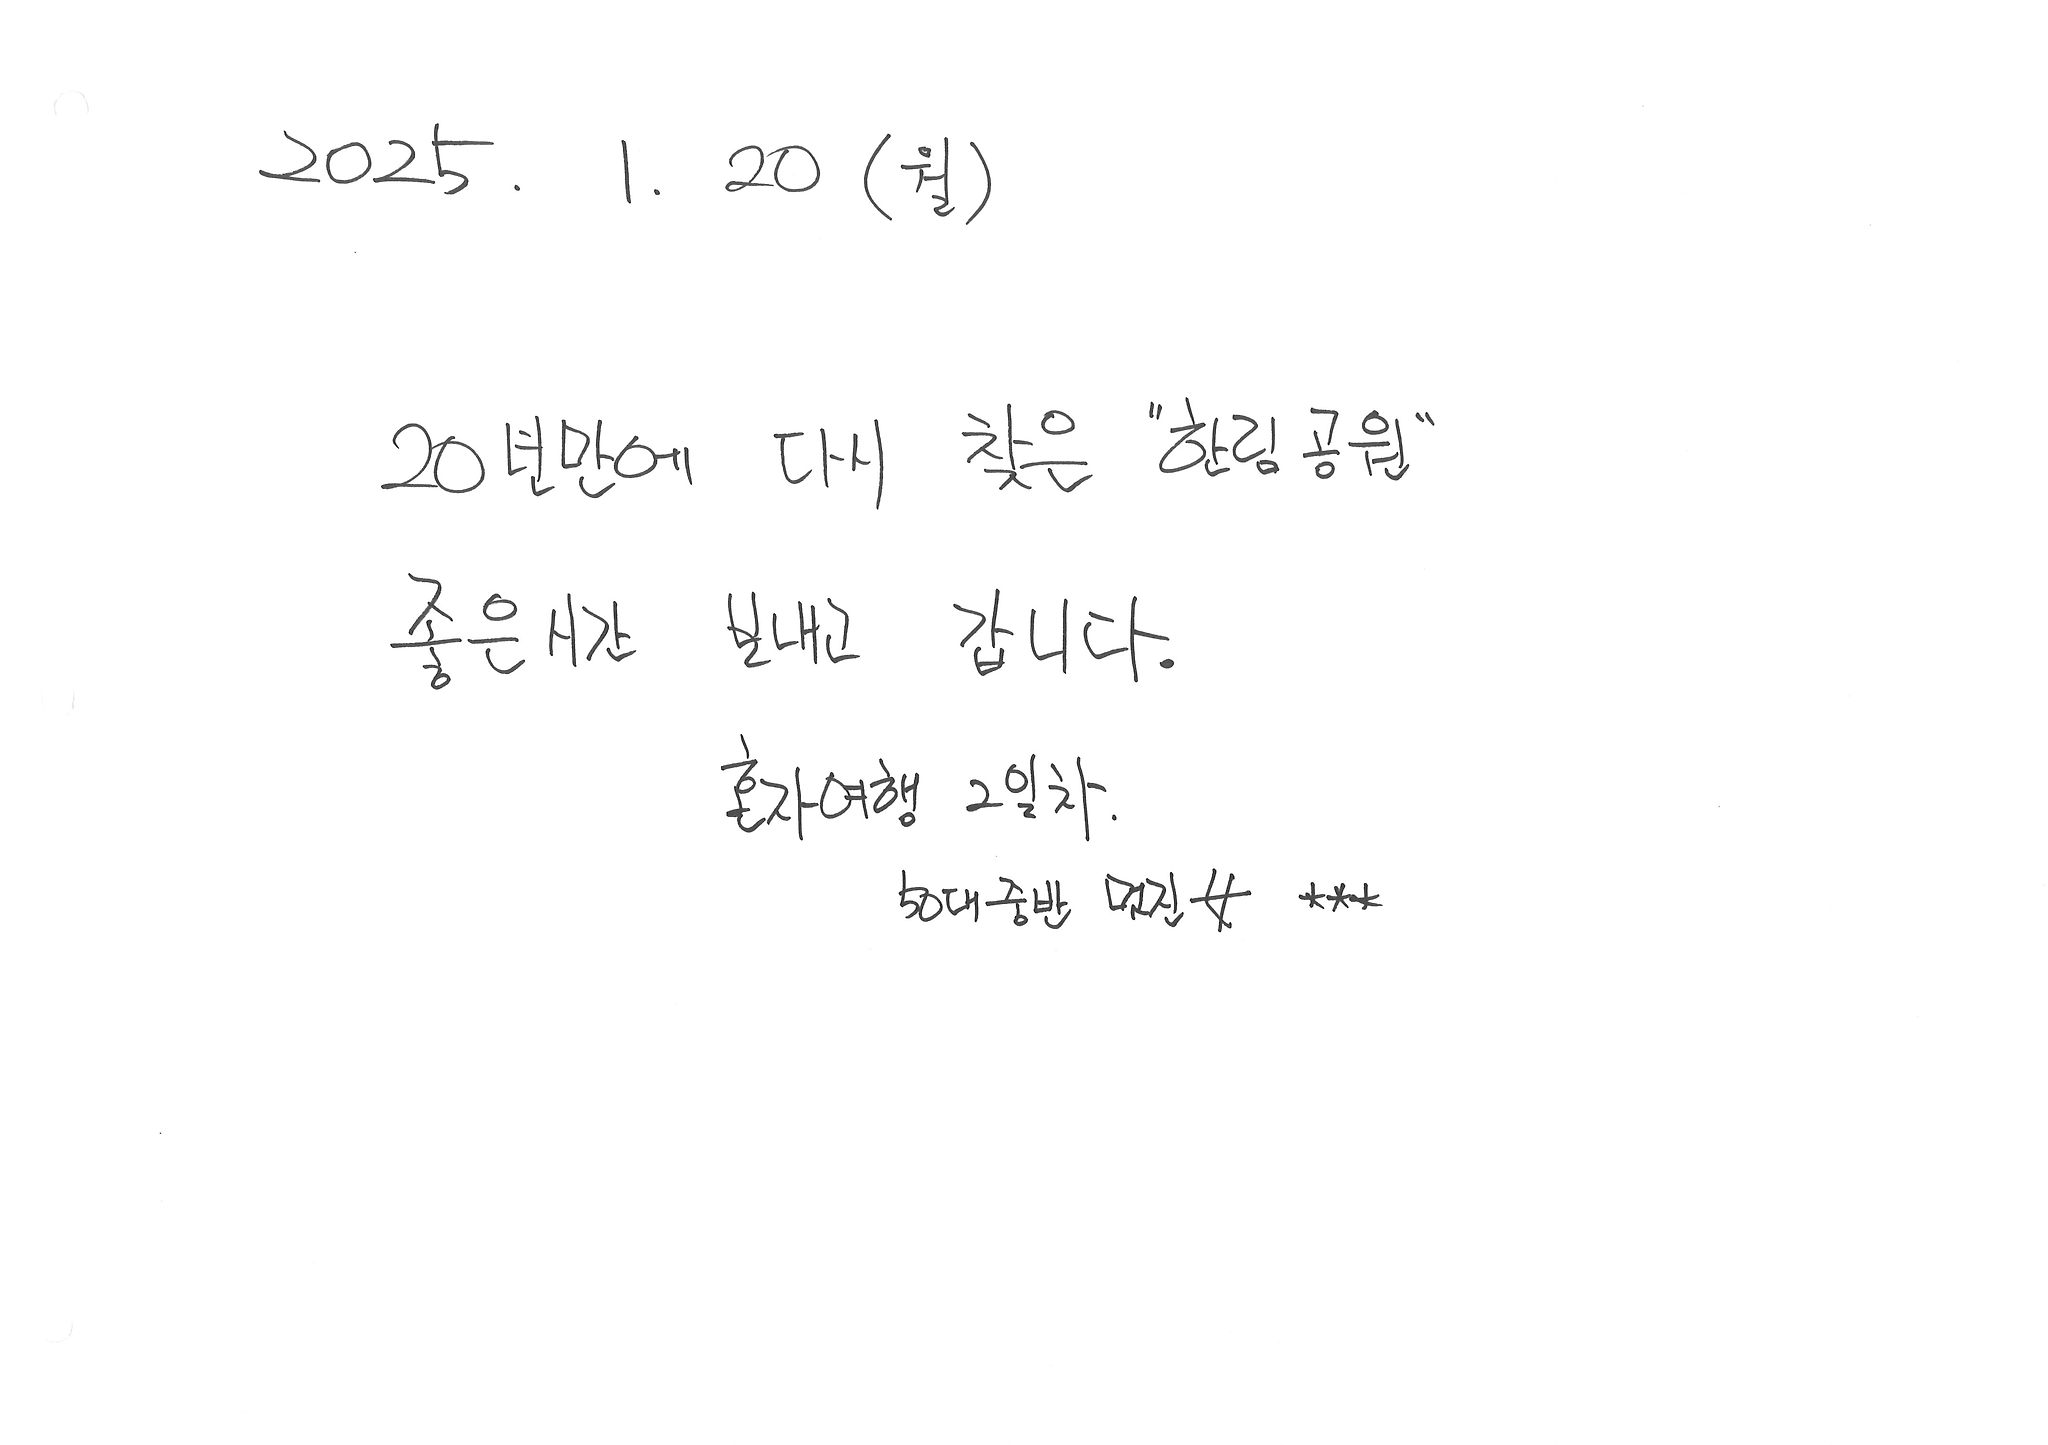 2025. 1. 20 (월)
20년만에 다시 찾은 "한림공원"
좋은시간 보내고 갑니다.
혼자여행 2일차.
50대중반 멋진 ***